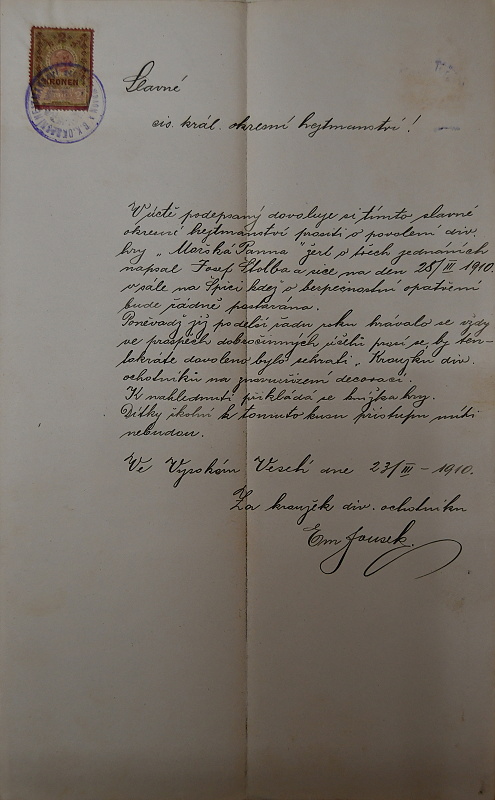 KORUNA
Slavné
cis. král. okresní hejtmanství!
V úctě podepsaný dovoluje si tímto slavné
okresní hejtmanství prositi o povolení div.
hry „Mořská Panna" žert o třech jednáních
napsal Josef Štolba a sice na den 28/III 1910.
v sále na Špici kdež o bezpečnostní opatření
bude řádně postaráno.
Poněvadž již po delší řadu roků hrávalo se vždy
ve prospěch dobročinných účelů prosí se, by ten-
tokráte dovoleno bylo sehráti „Kroužku div.
ochotníků na znovuzřízení decorací.
K nahlédnutí přikládá se knížka hry.
Dítky školní k tomuto kusu přístupu míti
nebudou.
Ve Vysokém Veselí dne 23/III – 1910.
Za kroužek div. ochotníků
Em Jousek.